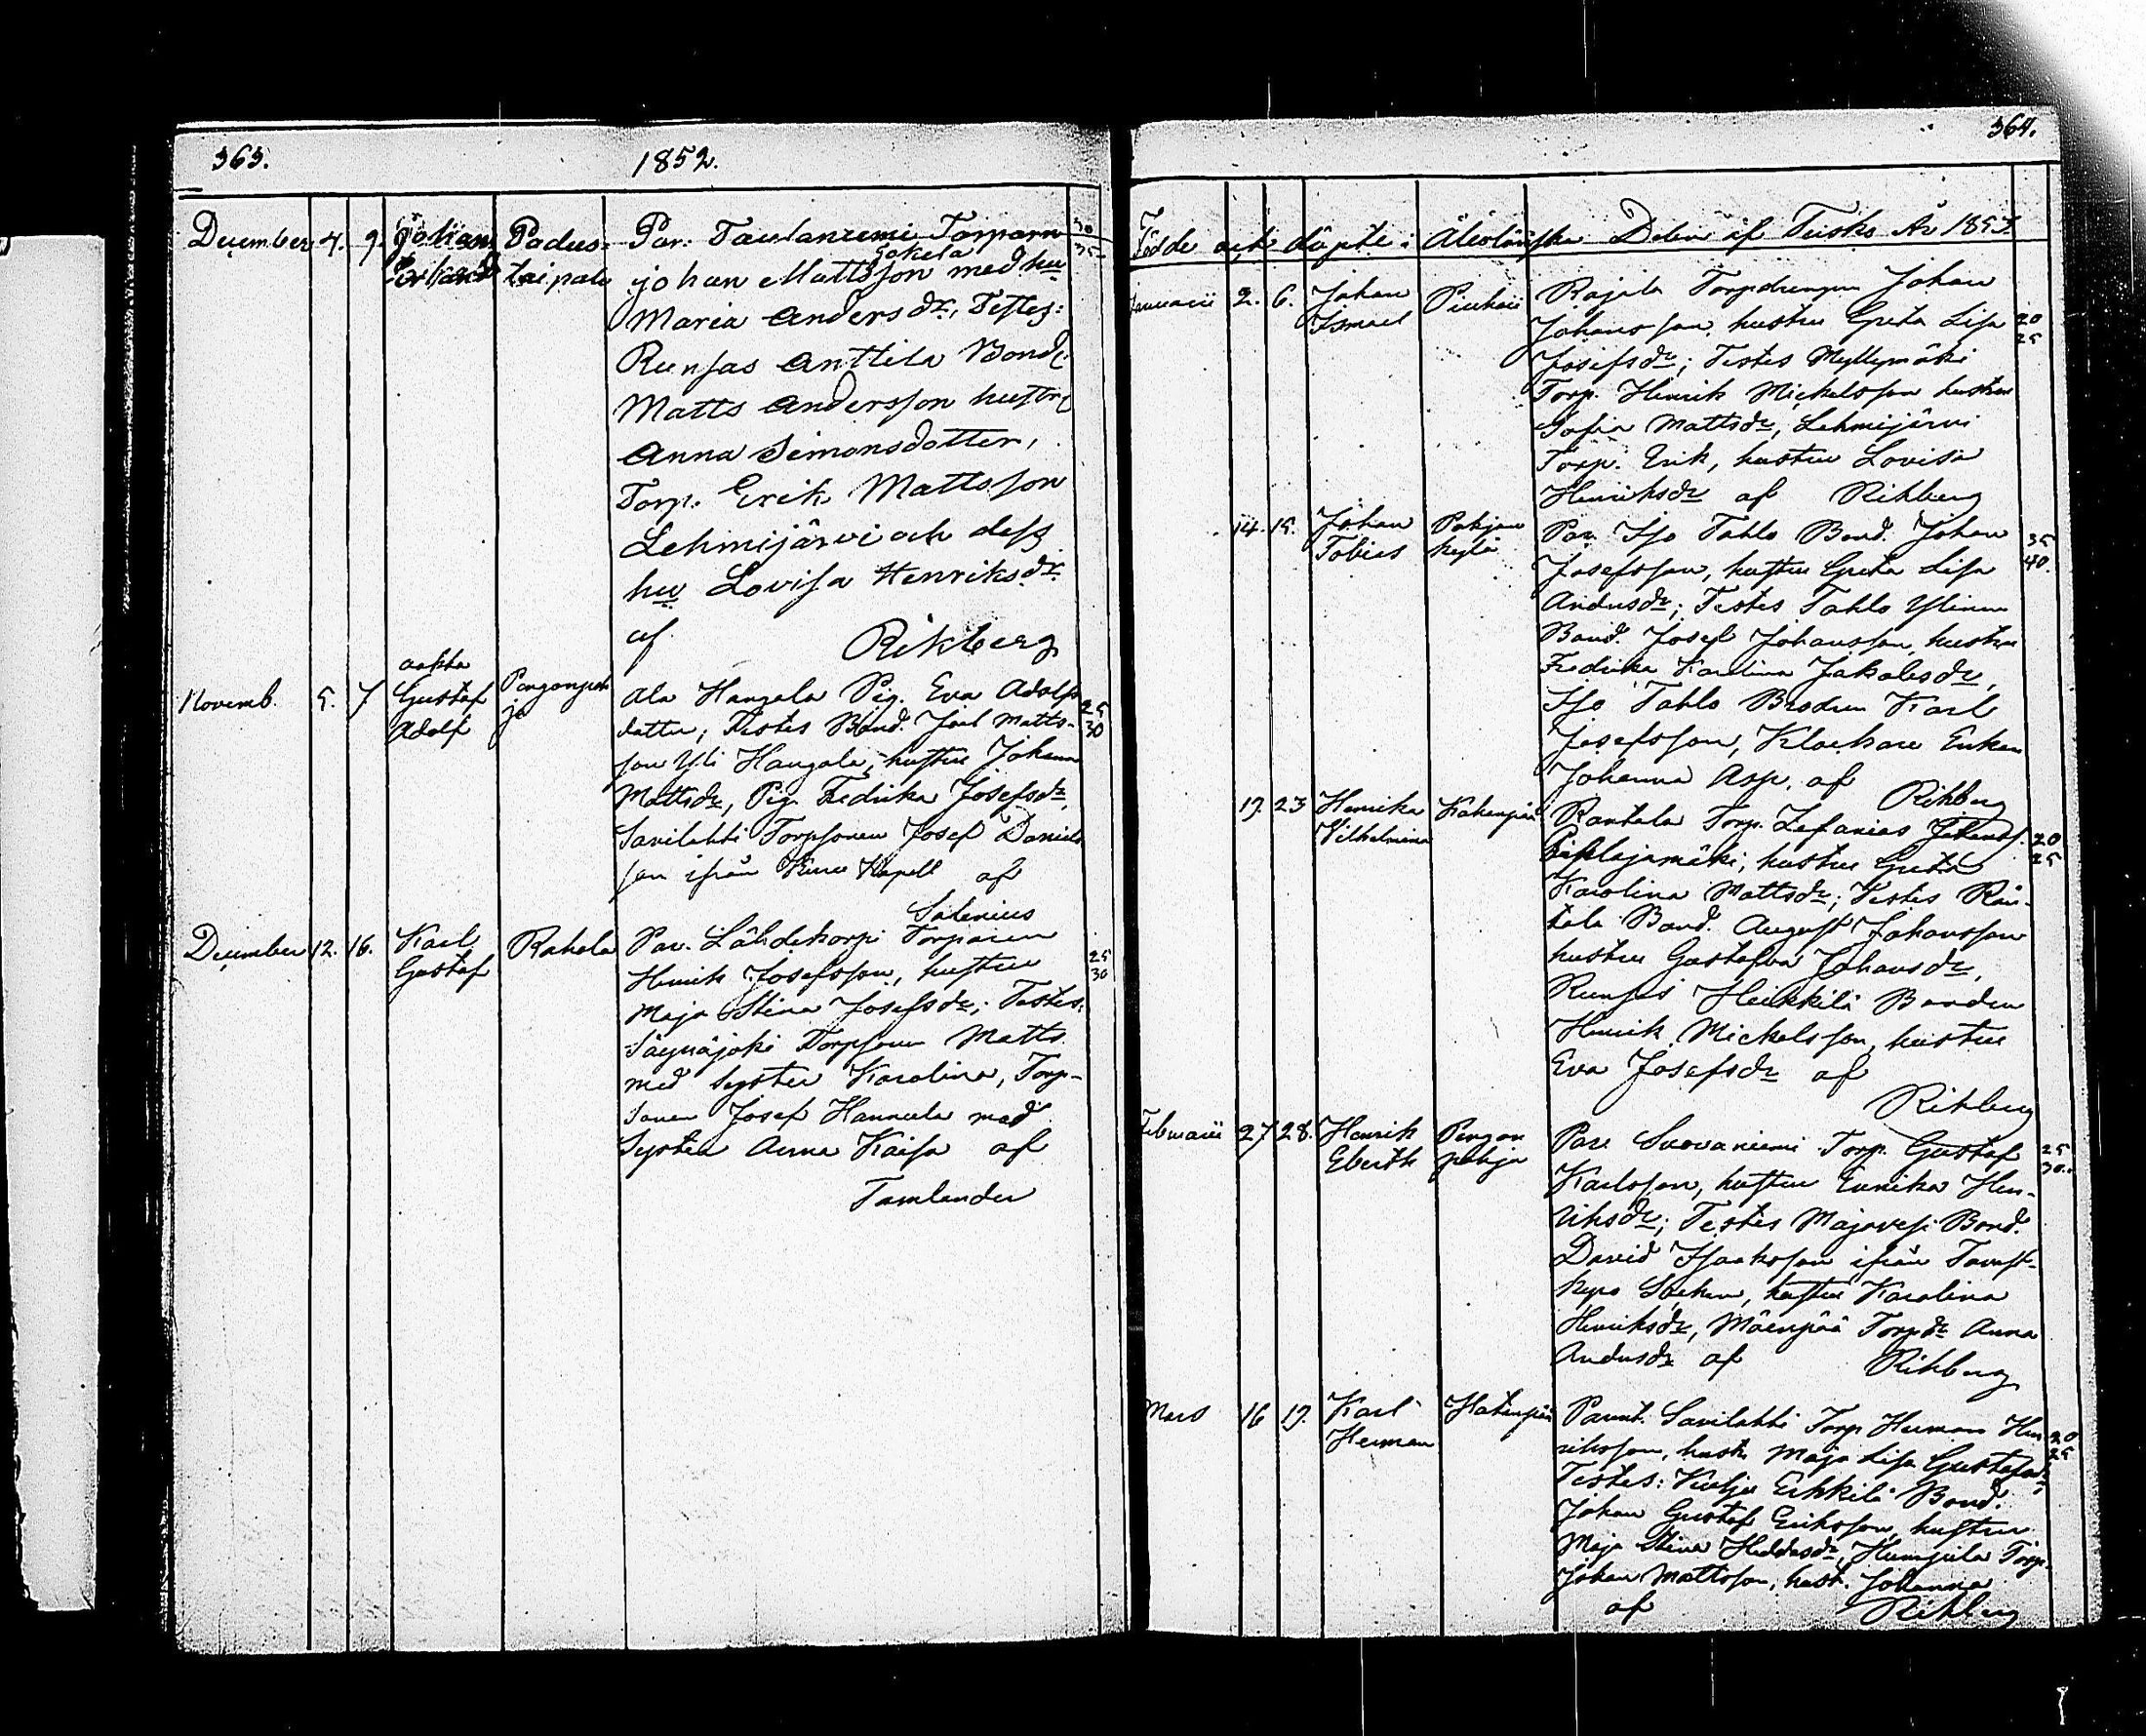 363.
1852.
December 4. 9. Johan Padus- Par: Taulaniemi Torparn 30
Erland taipale Jokela 35
johan Mattsson med hu
Maria Andersdr, Testes:
Runsas Anttila Bond:
Matts Andersson hustr:
Anna Simonsdotter,
Torp. Erik Mattsson
Lehmijärvi och dess
hu Lovisa Henriksdr.
af Rikberg
oakta
Novemb. 5. 7 Gustaf Pengonpoh Ala Hangala Pig. Eva Adolfs 25
Adolf ja dotter; Testes Bond. Joel Matts- 30
son Yli Hangala, hustru Johanna
Mattsdr, Pig. Fredrika Josefsdr,
Savilahti Torpsonen Josef Daniels
son ifrån Kuru Kapell af
Salenius
December 12. 16. Karl Rahola Par. Lähdekorpi Torparen 25
Gustaf Henrik Josefsson, hustru 30
Maja Stina Josefsdr; Testes:
Säynäjoki Torpsonen Matts
med Syster Karolina, Torp-
sonen Josef Hannula med
Syster Anna Kaisa af
Tamlander
364.
Födde och döpte i Delen af Teisko År 1853
Januarii 2. 6. Johan Rajala Torpdrengen Johan
Ismael Johansson, hustru Greta Lisa 20
Josefsdr; Testes Myllymäki 25
Torp. Henrik Mickelsson hustru
Sofia Mattsdr, Lehmijärvi
Torp. Erik, hustru Lovisa
Henriksdr af Rikberg
14. 15. Johan Pohjan Par. Iso Tahlo Bond. Johan 35
Tobias kylä Josefsson, hustru Greta Lisa 40.
Andersdr; Testes Tahlo Ylinen
Bond. Josef Johansson, hustru
Fredrika Karolina Jakobsdr,
Iso Tahlo Brodren Karl
Josefsson, Klockare Enkan
Johanna Asp. af Rikberg
19. 23 Henrika Kakenpää Rantala Torp. Zefanias Johanss. 20
Vilhelmina hustru Greta 25
Karolina Mattsdr; Testes Ran-
tala Bond. August Johansson
hustru Gustafva Johansdr,
Runsas Heikkilä Bonden
Henrik Mickelsson, hustru
Eva Josefsdr af
Rikberg
Februarii 27 28. Henrik Pengon Par. Suovaniemi Torp. Gustaf 25
Eberth pohja Karlsson, hustru Eunika Hen- 30.
riksdr; Testes Majavesi Bond.
David Isaaksson ifrån Tavast-
kyro Socken, hustru Karolina
Henriksdr, Mäenpää Torpdr Anna
Andersdr af Rikberg
Mars 16 19. Karl Hatanpää Parent. Savilahti Torp Herman Hen 20
Herman riksson, hustr. Maja Lisa Gustafsdr; 25
Testes: Kulju Erkkilä Bond.
Johan Gustaf Eriksson, hustru
Maja Stina Torp.
Johan Mattsson, hust. Johanna
af Rikberg